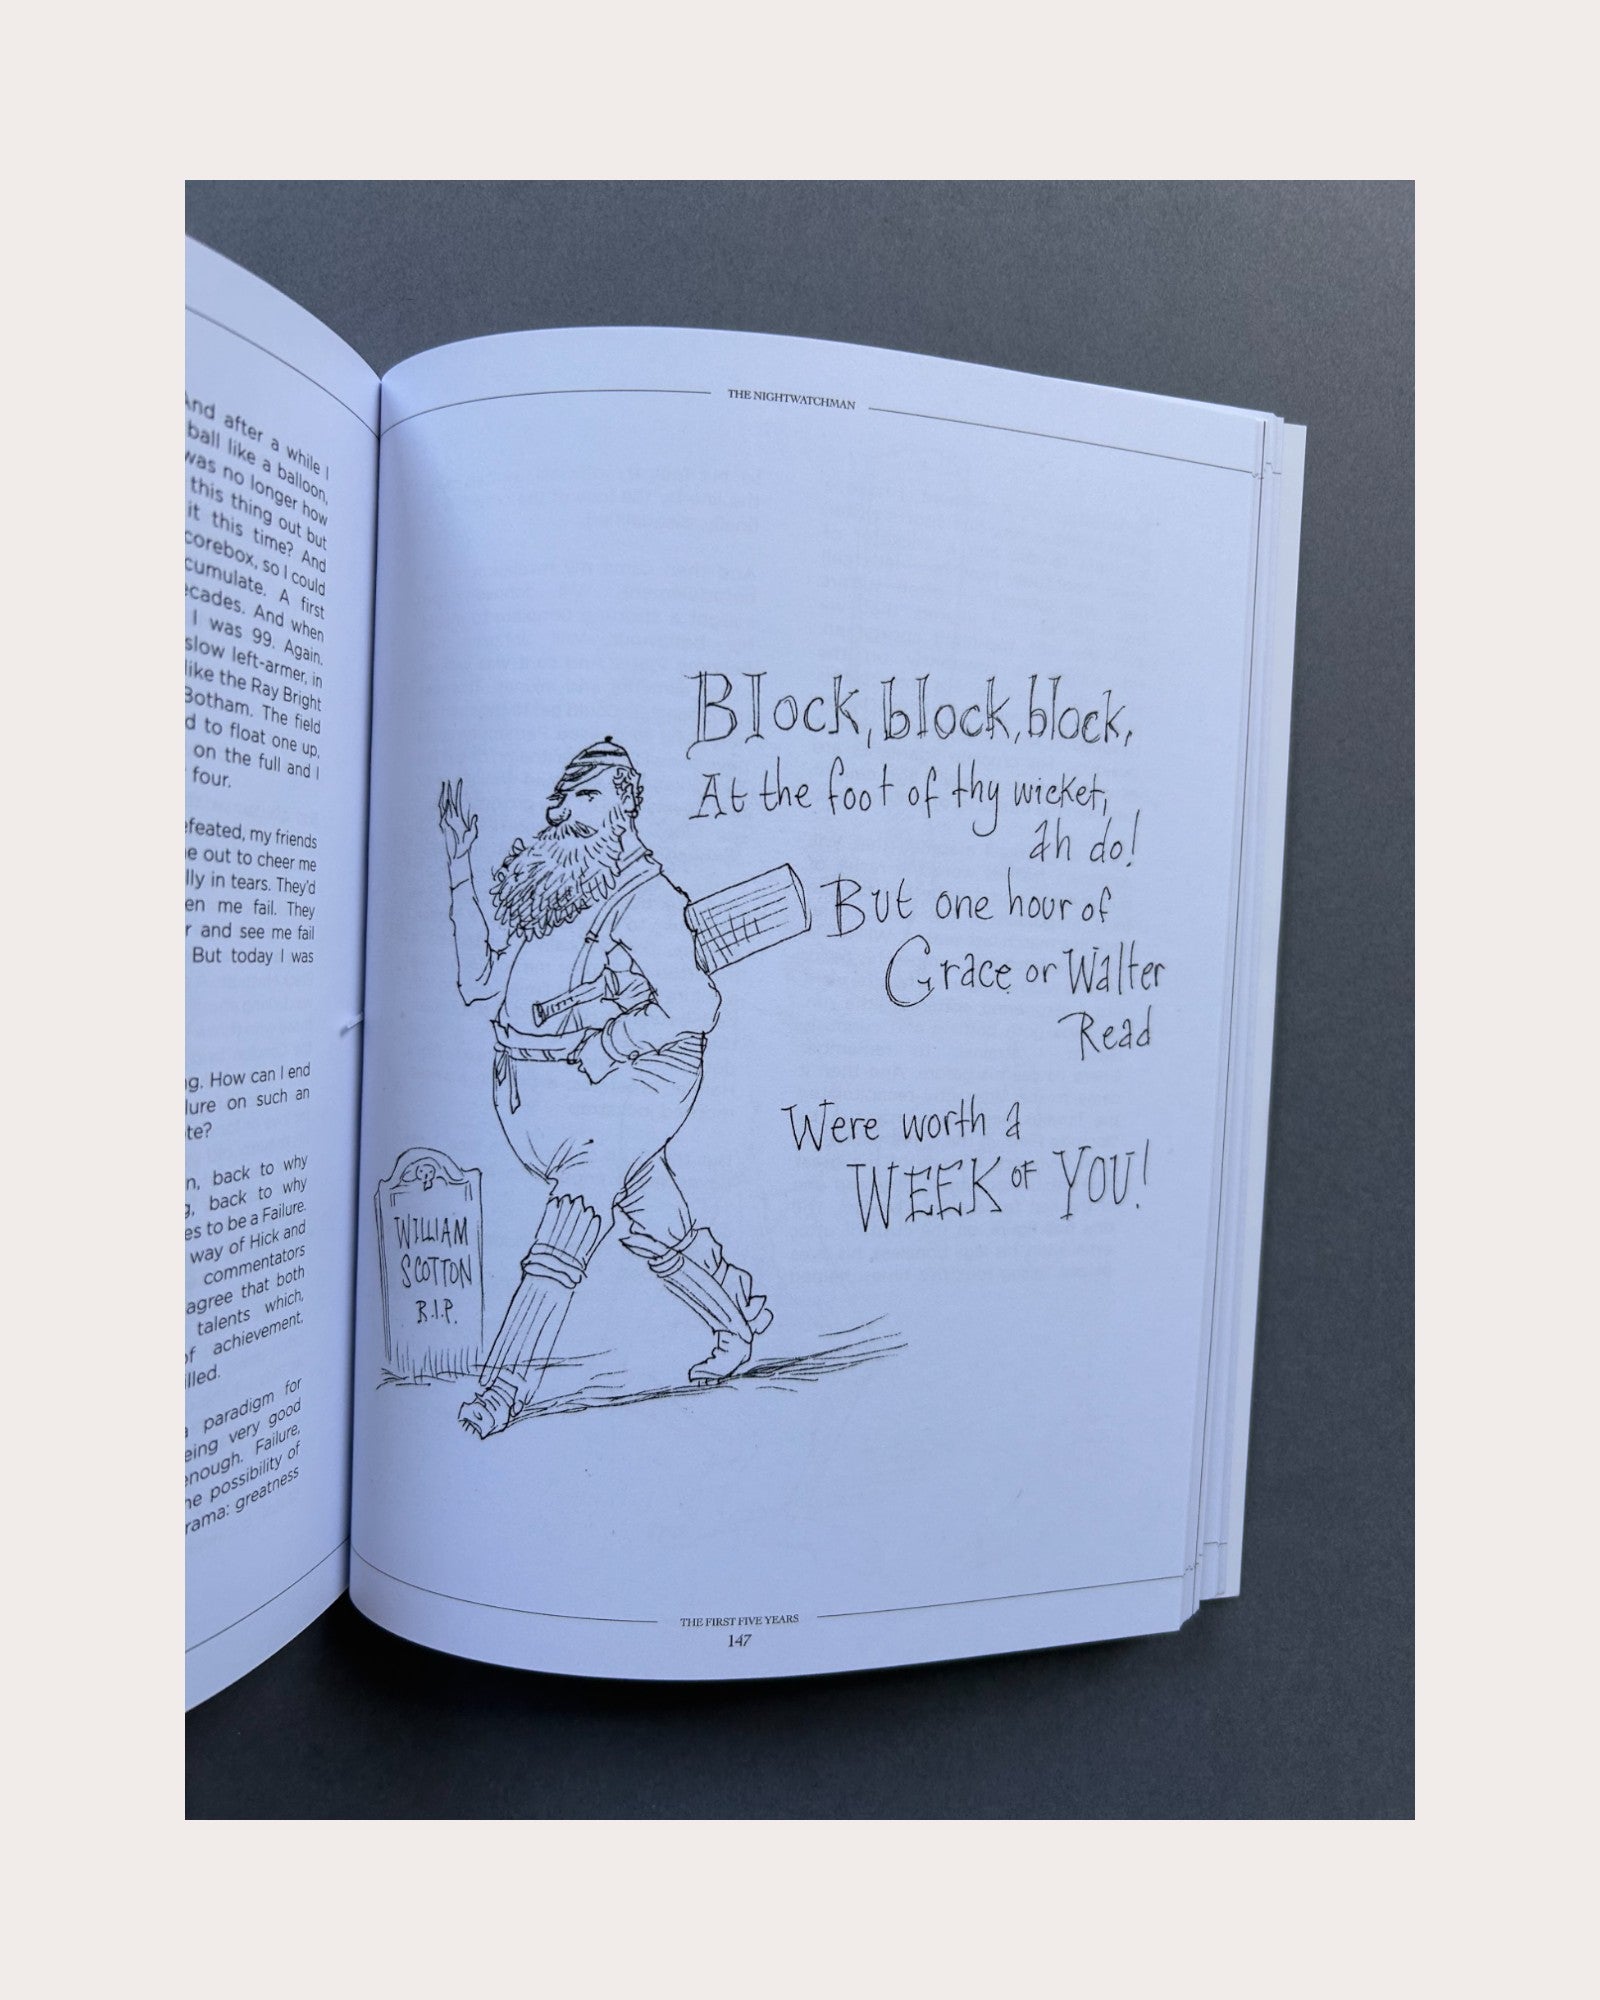 And after a while I
ball like a balloon,
was no longer how
this thing out but
it this time? And
corebox, so I could
cumulate. A first
ecades. And when
I was 99. Again.
slow left-armer, in
like the Ray Bright
Botham. The field
d to float one up,
on the full and I
four.
efeated, my friends
e out to cheer me
lly in tears. They'd
en me fail. They
r and see me fail
But today I was
ng. How can I end
lure on such an
te?
n, back to why
g, back to why
es to be a Failure.
way of Hick and
commentators
agree that both
talents which,
of achievement,
illed.
a paradigm for
eing very good
enough. Failure,
he possibility of
rama: greatness
THE NIGHTWATCHMAN
Block, block, block,
At the foot of thy wicket,
ah do!
But one hour of
Grace or Walter
Read
Were worth a
WEEK OF YOU!
WILLIAM
SCOTTON
R.I.P.
THE FIRST FIVE YEARS
147